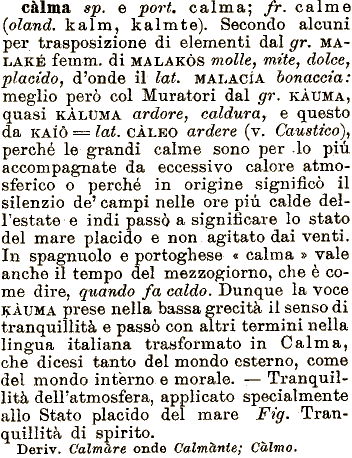 càlma sp. e port. calma; fr. calme
(oland. kalm, kalmte). Secondo alcuni
per trasposizione di elementi dal gr. MA-
LAKÉ femm. di MALAKÒS molle, mite, dolce,
placido, d'onde il lat. MALACÍA bonaccia:
meglio però col Muratori dal gr. KÀUMA,
quasi KÀLUMA ardore, caldura, e questo
da KAIÔ = lat. CÀLEO ardere (v. Caustico),
perché le grandi calme sono per lo più
accompagnate da eccessivo calore atmo-
sferico o perché in origine significò il
silenzio de' campi nelle ore più calde del-
l'estate e indi passò a significare lo stato
del mare placido e non agitato dai venti.
In spagnuolo e portoghese « calma » vale
anche il tempo del mezzogiorno, che è co-
me dire, quando fa caldo. Dunque la voce
KÀUMA prese nella bassa grecità il senso di
tranquillità e passò con altri termini nella
lingua italiana trasformato in Calma,
che dicesi tanto del mondo esterno, come
del mondo intèrno e morale. — Tranquil-
lità dell'atmosfera, applicato specialmente
allo Stato placido del mare Fig. Tran-
quillità di spirito.
Deriv. Calmàre onde Calmànte; Càlmo.